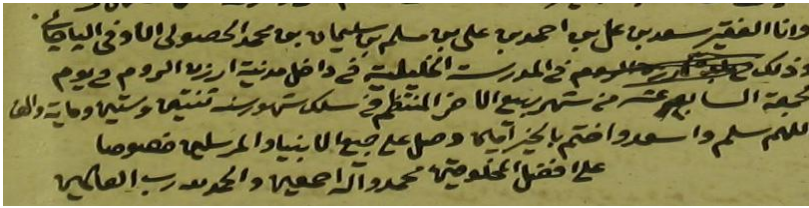 وانا الفقير سعد بن علي بن احمد بن علي بن مسلم بن سليمان بن محمد الحصولي
وذلك في المدرسة الخليلية في داخل مدنية ارزن الروم في يوم
جمعة السابع عشر من شهر ربيع الاخر المنتظم في سلك شهور سنة ثنتين وستين وماية والف
اللهم سلم واسعد واختم بالخير آمين وصل على جميع الانبياء والمرسلين خصوصا
على افضل المخلوقين محمد وآله اجمعين والحمد لله رب العالمين